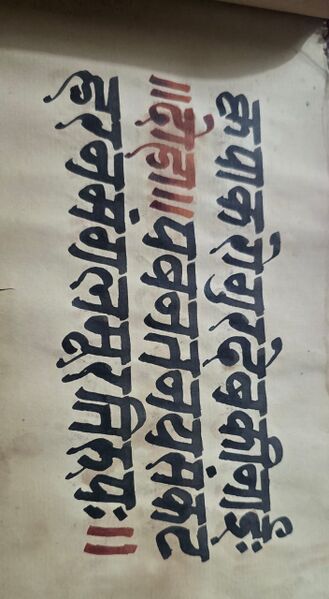 क्रपाकरोगुरदेवकीनाई:
॥दोहा॥पवनतनयसंकट
हरनमंगलमूरतिरुपः॥